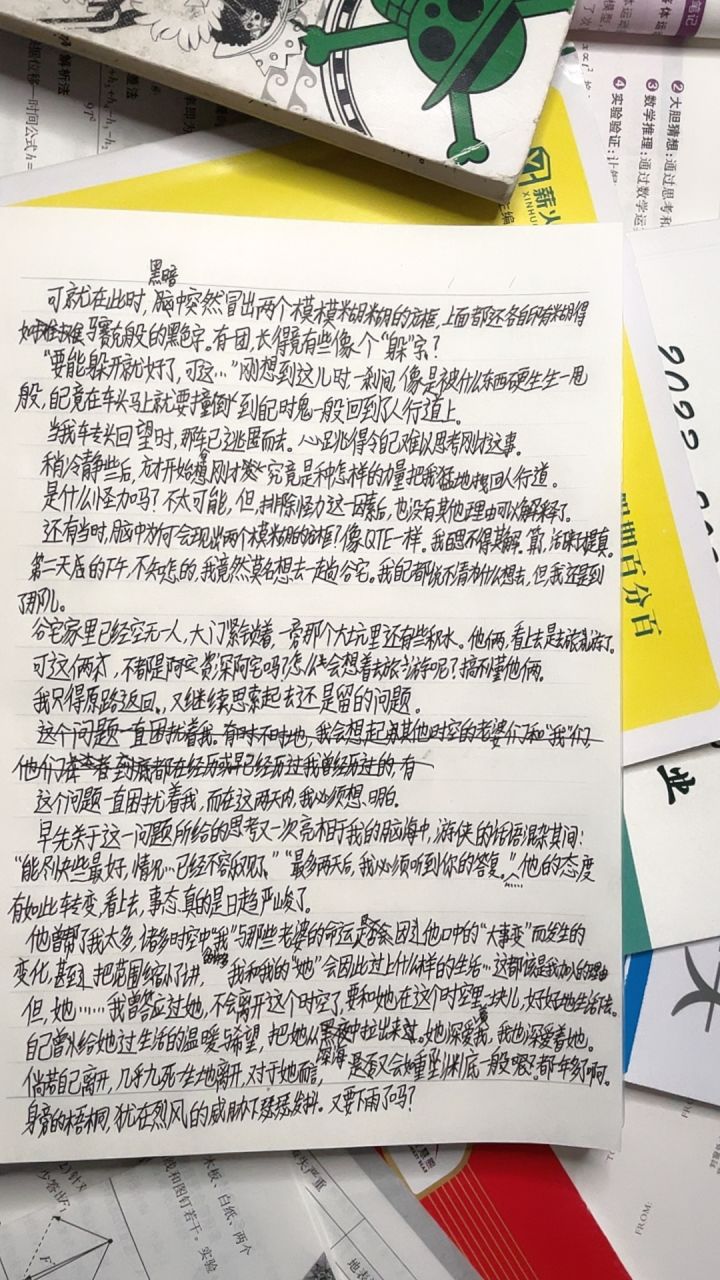 笔记
②大胆猜想:通过思考和
③数学推理:通过数学运
④实验验证:
解析法
据位移一时间公式h=
薪火
XINHUO
主编
黑暗
可就在此时,脑中突然冒出两个模模糊糊的方框,上面都还各自印有糊得
马赛克般的黑色字。有一团,长得竟有些像个“躲”字?
“要能躲开就好了,可这…”刚想到这儿时一刹间,像是被什么东西硬生生一甩
般,自己竟在车头马上就要撞倒到自己时鬼一般回到了人行道上。
当我车专头回望时,那车已逃匿而去。心跳得令自己难以思考刚才这事。
稍冷静些后,方才开始想刚才究竟是种怎样的力量把我猛地拽回人行道。
是什么怪力吗?不太可能,但,排除怪力这一因素后,也没有其他理由可以解释了。
还有当时,脑中为何会现出两个模糊的方框?像QTE一样。我百思不得其解。算了,活来才是真。
第二天后的下午,不知怎的,我竟然莫名想去一趟谷宅。我自己都说不清为什么想去,但我还是到
了那儿。
谷宅家里已经空无一人,大门紧锁着,旁那个大坑里还有些积水。他俩,看上去是去旅游了。
可这俩,不都是阿宅资深阿宅吗?怎么会想着去旅游呢?搞不懂他俩。
我只得原路返回。,又继续思索起去还是留的问题。
这个问题一直困扰着我。有时不时地,我会想起其他时空的老婆们和“我”们
他们到底都在经历或早已经历过我曾经历过的,有
这个问题一直困扰着我,而在这两天内,我必须想明白。
早先关于这一问题所给的思考又一次亮相于我的脑海中,游侠的话语混杂其间:
“能尽快些最好,情况…已经不容乐观了。”“最多两天后,我必须听到你的答复。”他的态度
有如此转变,看上去,事态真的是日趋严峻了。
他曾帮了我太多,诸多时空中“我”与那些老婆的命运是否会因这他口中的“大事变”而发生的
变化,甚至把范围缩小了讲,我和我的“她”会因此过上什么样的生活…这都该是我加入的理由
但,她……我曾答应过她,不会离开这个时空了,要和她在这个时空里一块儿,好好地生活下去。
自己曾给她过生活的温暖与希望,把她从黑夜中拉出来过。她深爱我,我也深爱着她。
深海
倘若自己离开,几乎九死一生地离开,对于她而言,是否又会如重坠渊底一般呢?都年岁了啊。
身旁的梧桐,犹在烈风的威胁下瑟瑟发抖。又要下雨了吗?
2022
假期百分百
业
木板、白纸、两个
图钉若干。实验
FROM: